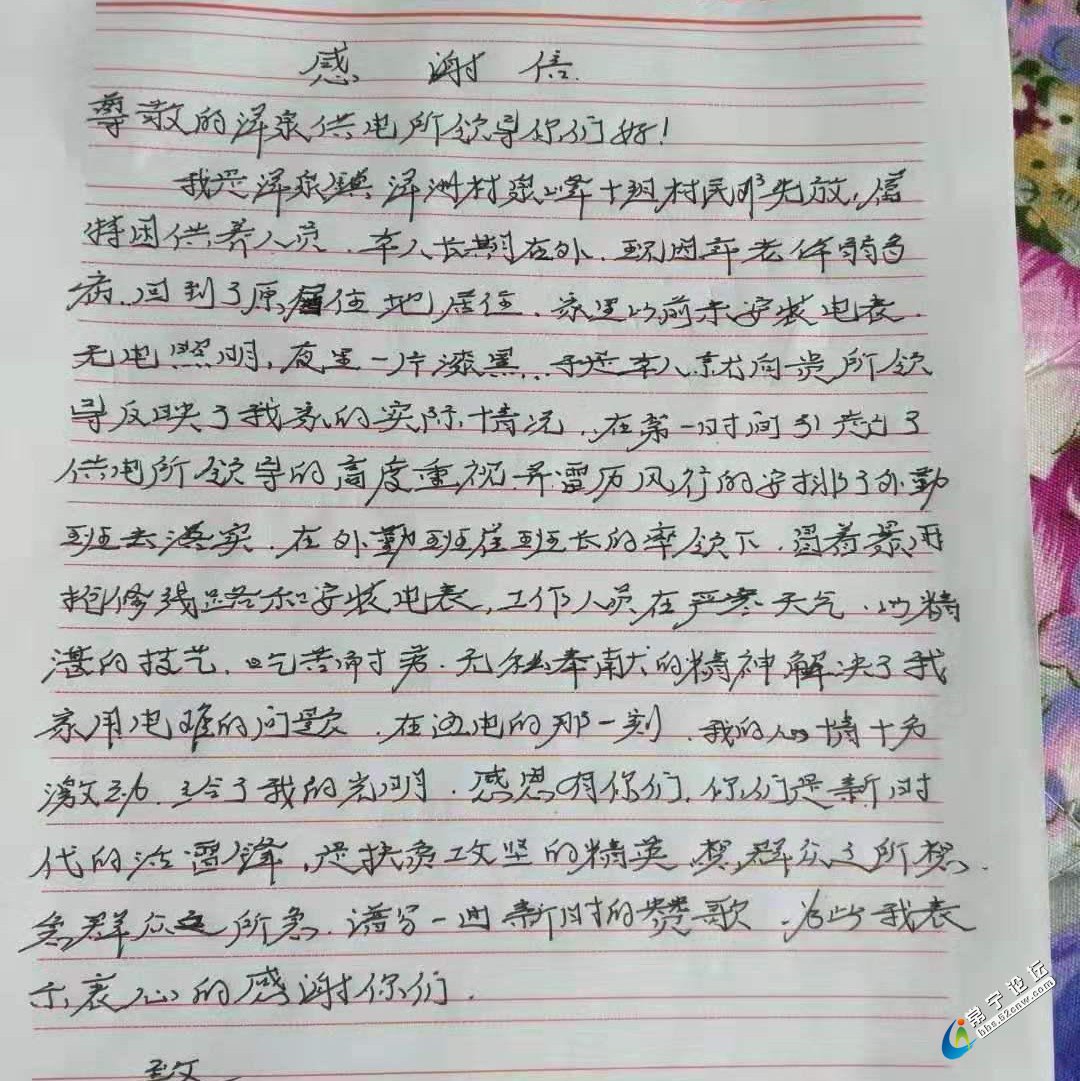 感谢信
尊敬的洋泉供电所领导你们好!
我是洋泉镇洋洲村泉峰十班村民邓先放,属
特困供养人员.本人长期在外.现因年老体弱多
病.回到了原居住地居住.家里以前未安装电表.
无电照明,夜里一片漆黑..于是本人就向贵所领
导反映了我家的实际情况..在第一时间引起了
供电所领导的高度重视并雷厉风行的安排了外勤
班去落实.在外勤班崔班长的率领下.冒着暴雨
抢修线路和安装电表,工作人员在严寒天气.以精
湛的技艺.吃苦耐劳.无私奉献的精神解决了我
家用电难的问题.在通电的那一刻.我的心情十分
激动.给了我的光明.感恩有你们.你们是新时
代的活雷锋,是扶贫攻坚的精英.想群众之所想.
急群众之所急.谱写一曲新时的赞歌.为此我表
示衷心的感谢你们.
致
常宁论坛
bbs.52cnw.com